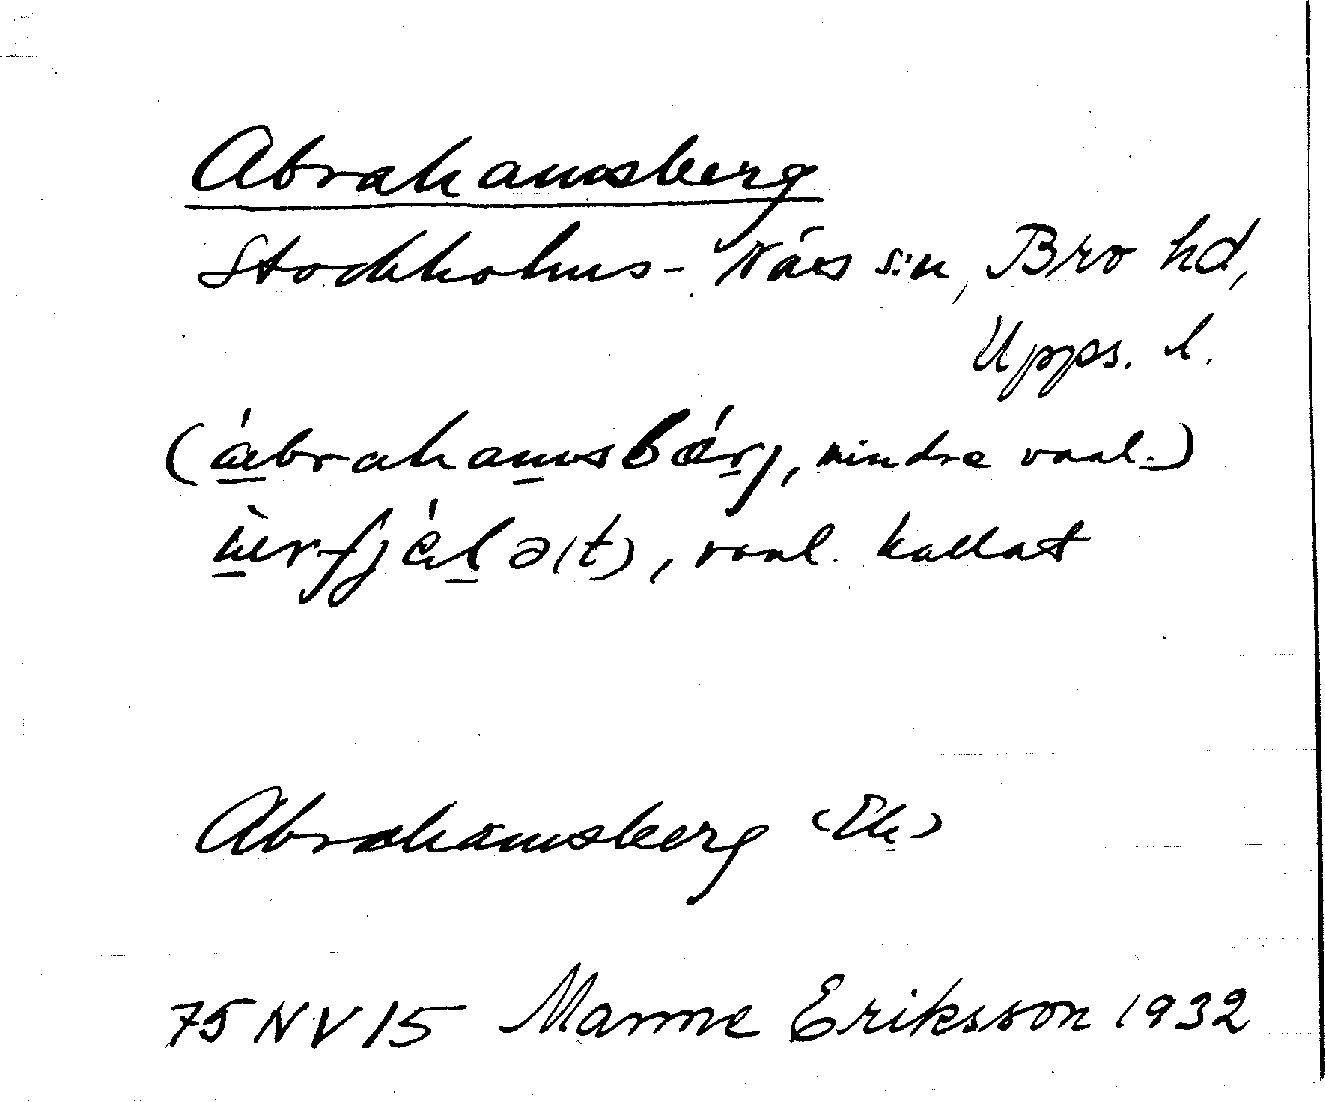 Abrahamsberg
Stockholms-Näs s:n, Bro hd,
Upps. l.
(ábrahamsbárj, mindre vanl.)
nèrfjél ə(t), vanl. kallat
Abrahamsberg (Ek)
75 NV 15 Manne Eriksson 1932